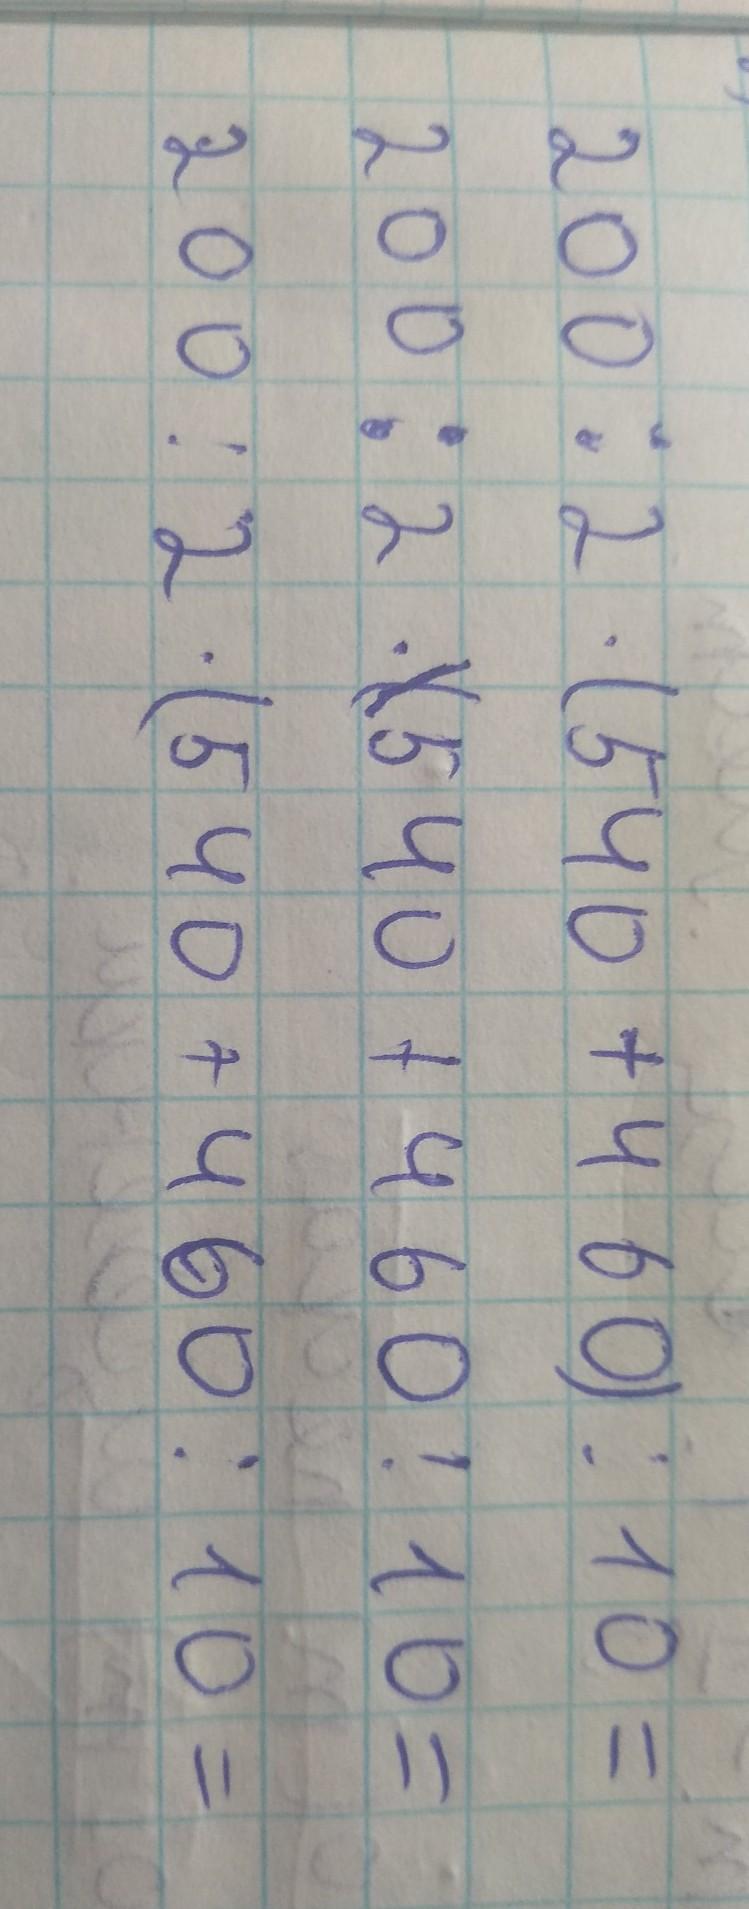 200:2·(540+460):10=
200:2·(540+460:10=
200:2·(540+460:10=